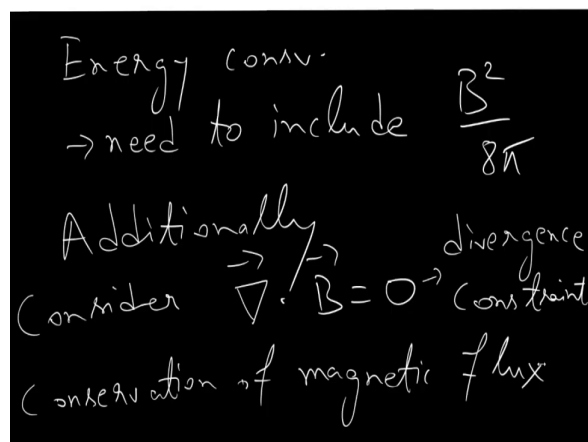 Energy consv.
→ need to include B²/8π
Additionally
Consider ∇⃗ · B⃗ = 0 → divergence constraint
Conservation of magnetic flux